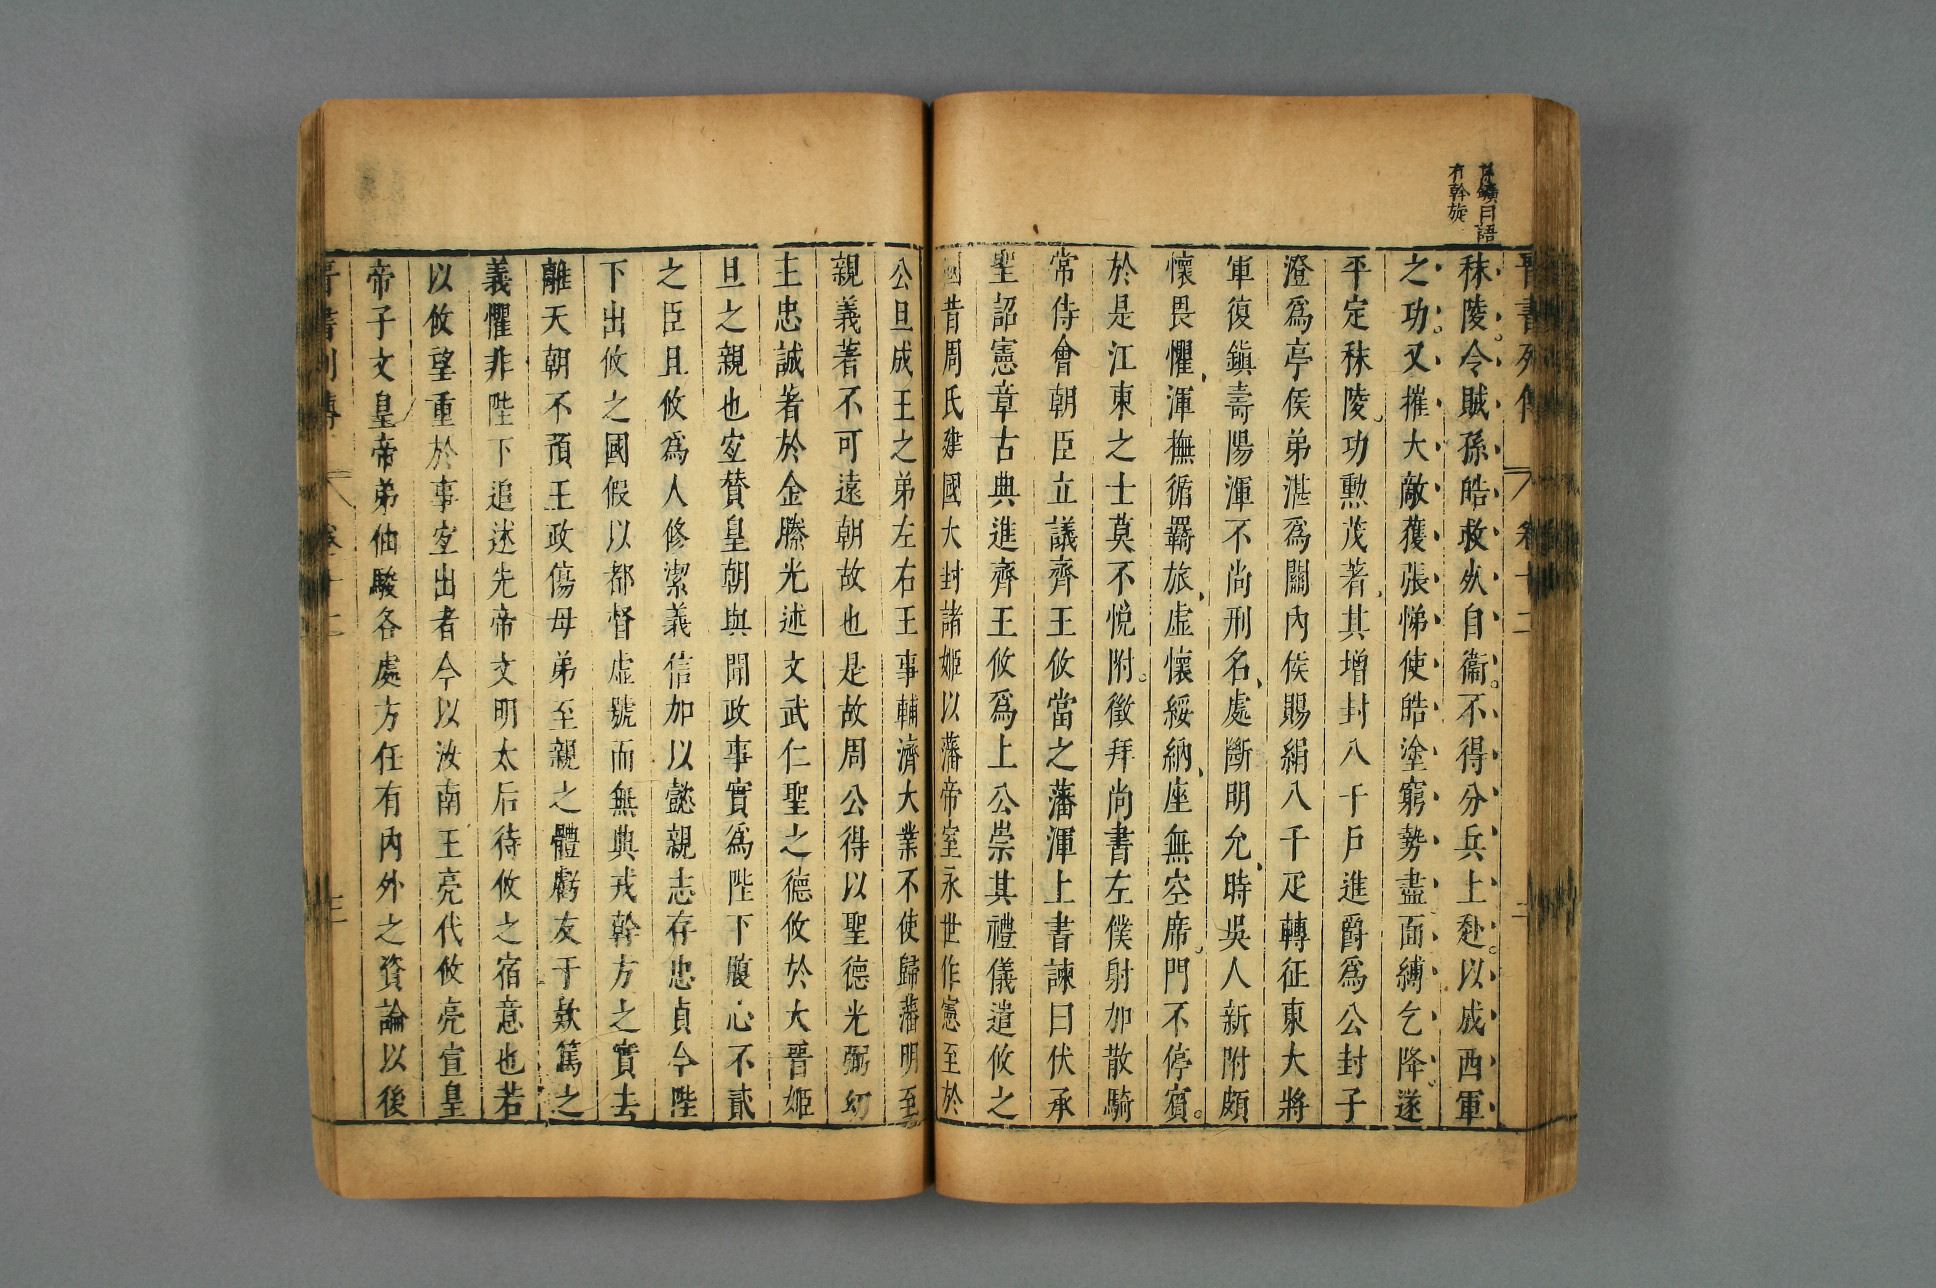 孫鑛曰語
有幹旋
晉書列傳 卷十二 二
秣陵。令賊孫皓救死自衞。不得分兵上赴。以成西軍
之功。又摧大敵獲張悌使皓塗窮勢盡面縛乞降。遂
平定秣陵。功勲茂著。其增封八千戶進爵爲公封子
澄爲亭侯弟湛爲關內侯賜絹八千疋轉征東大將
軍復鎭壽陽渾不尚刑名、處斷明允、時吳人新附頗
懷畏懼、渾撫循羇旅、虛懷綏納、座無空席。門不停賔。
於是江東之士莫不悅附。徵拜尚書左僕射加散騎
常侍會朝臣立議齊王攸當之藩渾上書諫曰伏承
聖詔憲章古典進齊王攸爲上公崇其禮儀遣攸之
國昔周氏建國大封諸姬以藩帝室永世作憲至於
公旦成王之弟左右王事輔濟大業不使歸藩明至
親義著不可遠朝故也是故周公得以聖德光弼幼
主忠誠著於金縢光述文武仁聖之德攸於大晉姬
旦之親也宐贊皇朝與聞政事實爲陛下腹心不貳
之臣且攸爲人修潔義信加以懿親志存忠貞今陛
下出攸之國假以都督虛號而無典戎幹方之實去
離天朝不預王政傷母弟至親之體虧友于款篤之
義懼非陛下追述先帝文明太后待攸之宿意也若
以攸望重於事宐出者今以汝南王亮代攸亮宣皇
帝子文皇帝弟伷駿各處方任有內外之資論以後
晉書列傳 卷十二 三